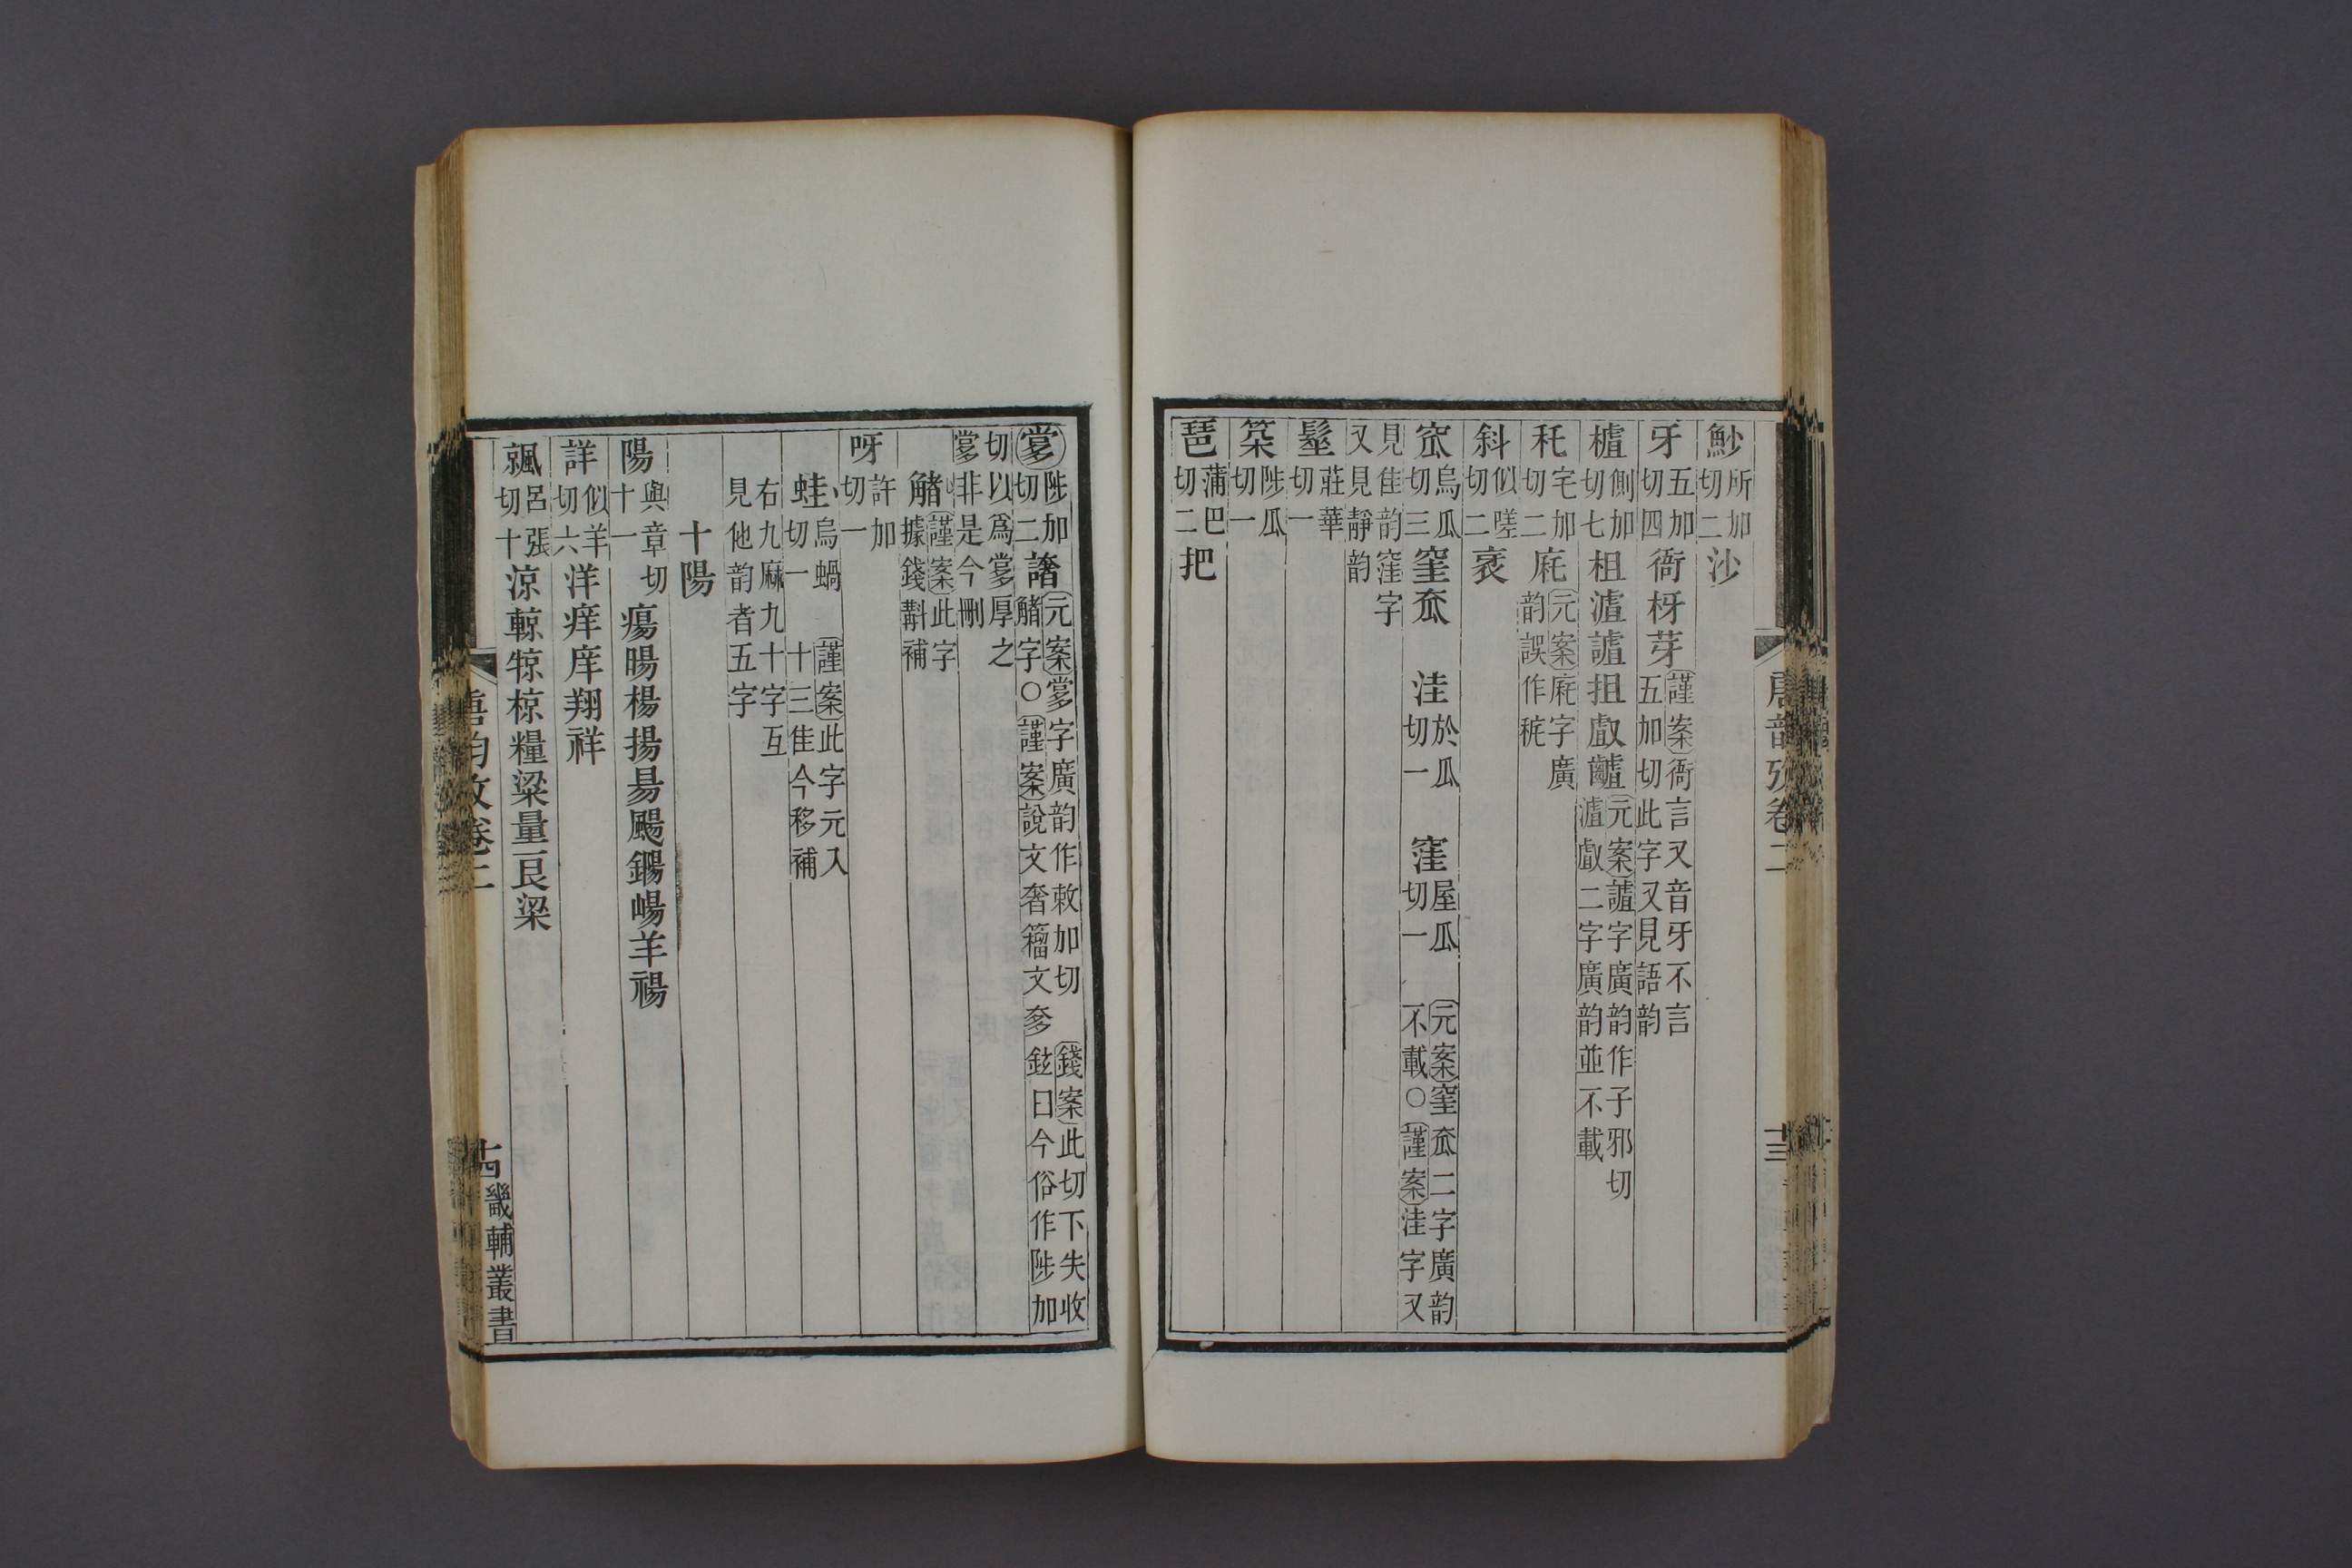 唐韵攷卷二 十三
魦所加切二沙
牙五加切四衙枒芽謹案衙言又音牙不言五加切此字又見語韵
樝側加切七柤澬謯抯䖒齇元案謯字廣韵作子邪切䖒二字廣韵並不載
秅宅加切二㡯元案㡯字廣韵誤作秺
斜似嗟切二衺
窊烏瓜切三窐㼌 洼於瓜切一 窪屋瓜切一 元案窐㼌二字廣韵不載○謹案洼字又
見佳韵窪字又見靜韵
髽莊華切一
檛陟瓜切一
琶蒲巴切二把
奓陟加切二譇元案奓字廣韵作敕加切觰字○謹案說文奢籀文奓 錢案此切下失收鉉曰今俗作陟加
切以爲奓厚之奓非是今刪
觰謹案此字據錢斠補
呀許加切一
蛙烏蝸切一 謹案此字元入十三佳今移補
右九麻九十字互見他韵者五字
十陽
陽與章切十一瘍暘楊揚昜颺鍚崵羊禓
詳似羊切六洋痒庠翔祥
飆呂張切十涼輬㹁椋糧粱量㫐梁
唐韵攷卷二 十四 畿輔叢書